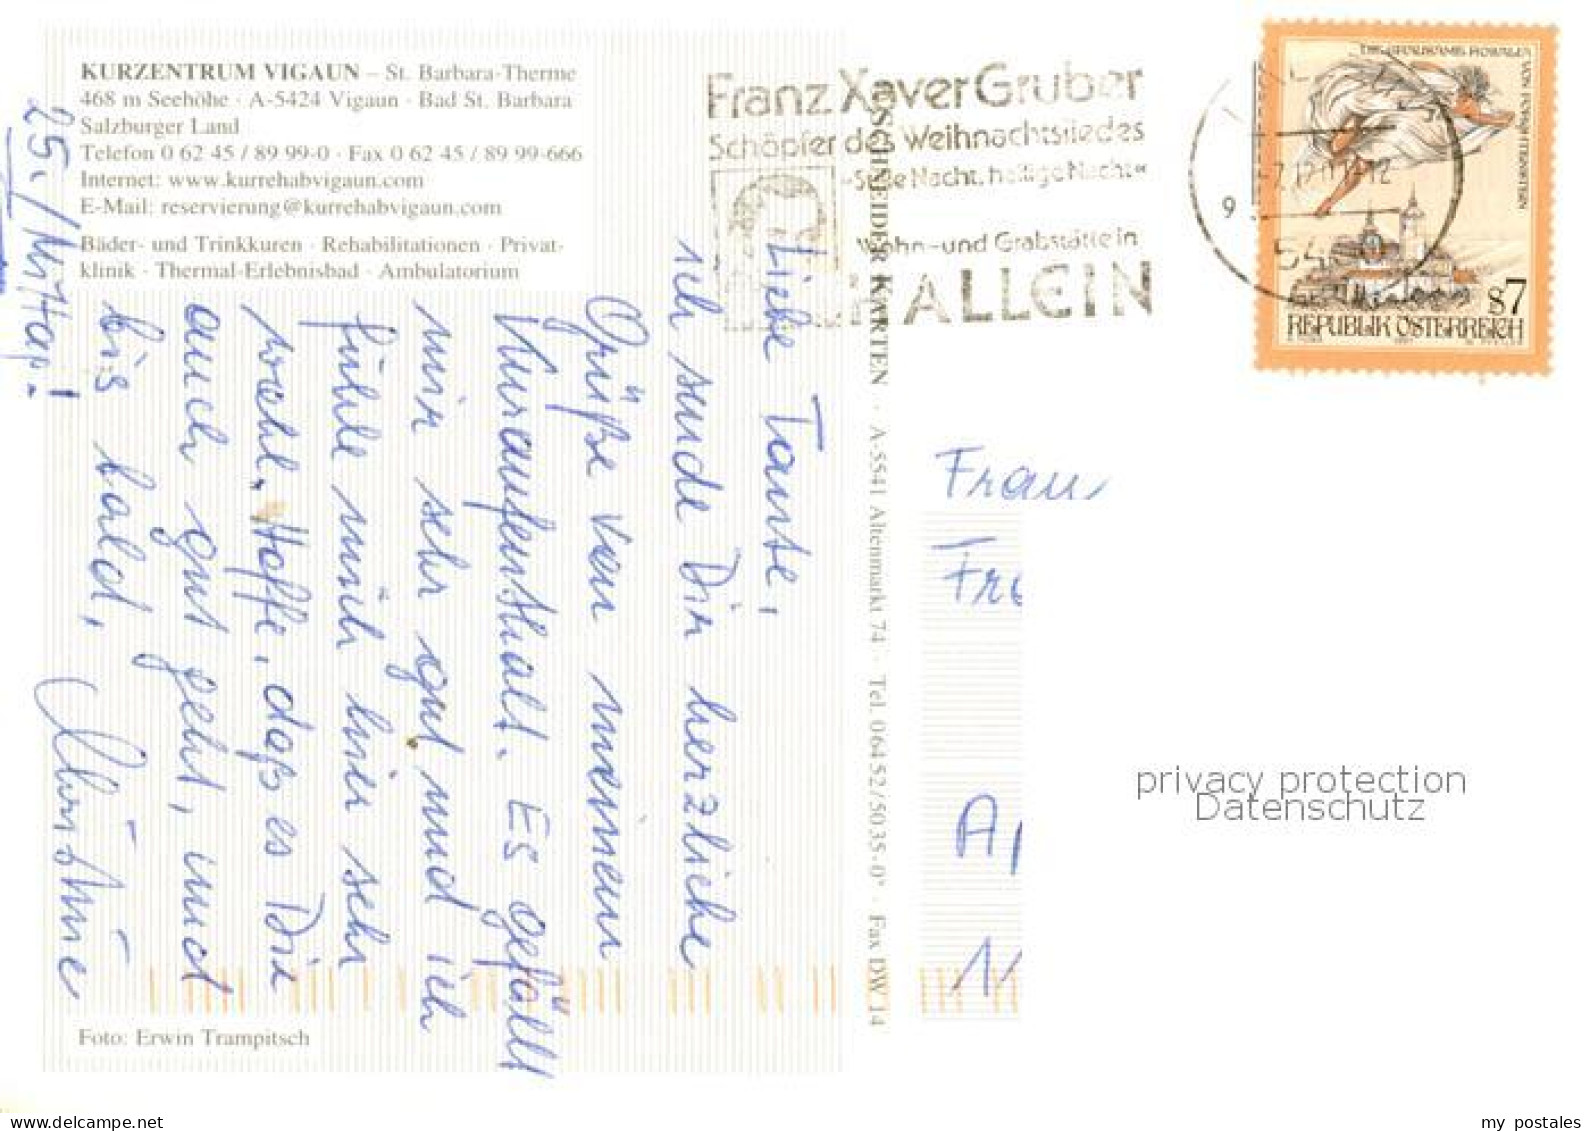 KURZENTRUM VIGAUN – St. Barbara-Therme
468 m Seehöhe · A-5424 Vigaun · Bad St. Barbara
Salzburger Land
Telefon 0 62 45 / 89 99-0 · Fax 0 62 45 / 89 99-666
Internet: www.kurrehabvigaun.com
E-Mail: reservierung@kurrehabvigaun.com
Bäder- und Trinkkuren · Rehabilitationen · Privat-
klinik · Thermal-Erlebnisbad · Ambulatorium
Liebe Tante,
ich sende Dir herzliche
Grüße von meinem
Kuraufenthalt. Es gefällt
mir sehr gut und ich
fühle mich hier sehr
wohl. Hoffe, daß es Dir
auch gut geht, und
bis bald,
Christine
25./
Foto: Erwin Trampitsch
SCHNEIDER KARTEN · A-5541 Altenmarkt 74 · Tel. 06452/5035-0* · Fax DW 14
Franz Xaver Gruber
Schöpfer des Weihnachtsliedes
»Stille Nacht, heilige Nacht«
Wohn-und Grabstätte in
HALLEIN
S7
REPUBLIK ÖSTERREICH
Frau
privacy protection
Datenschutz
www.delcampe.net
my_postales